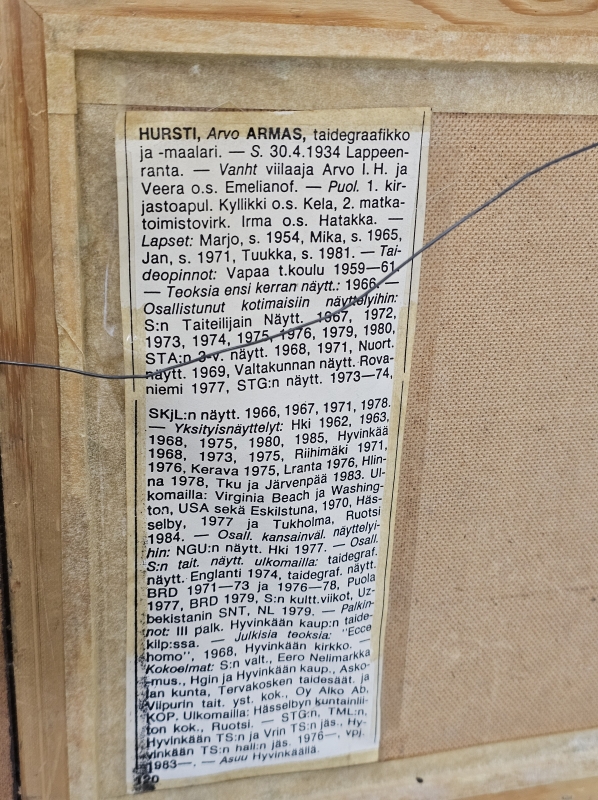 HURSTI, Arvo ARMAS, taidegraafikko
ja -maalari. — S. 30.4.1934 Lappeen-
ranta. — Vanht viilaaja Arvo I. H. ja
Veera o.s. Emelianof. — Puol. 1. kir-
jastoapul. Kyllikki o.s. Kela, 2. matka-
toimistovirk. Irma o.s. Hatakka. —
Lapset: Marjo, s. 1954, Mika, s. 1965,
Jan, s. 1971, Tuukka, s. 1981. — Tai-
deopinnot: Vapaa t.koulu 1959—61.
— Teoksia ensi kerran näytt.: 1966. —
Osallistunut kotimaisiin näyttelyihin:
S:n Taiteilijain Näytt. 1967, 1972,
1973, 1974, 1975, 1976, 1979, 1980,
STA:n 3-v. näytt. 1968, 1971, Nuort.
näytt. 1969, Valtakunnan näytt. Rova-
niemi 1977, STG:n näytt. 1973—74,
SKjL:n näytt. 1966, 1967, 1971, 1978.
— Yksityisnäyttelyt: Hki 1962, 1963,
1968, 1975, 1980, 1985, Hyvinkää
1968, 1973, 1975, Riihimäki 1971,
1976, Kerava 1975, Lranta 1976, Hlin-
na 1978, Tku ja Järvenpää 1983. Ul-
komailla: Virginia Beach ja Washing-
ton, USA sekä Eskilstuna, 1970, Häs-
selby, 1977 ja Tukholma, Ruotsi
1984. — Osall. kansainväl. näyttelyi-
hin: NGU:n näytt. Hki 1977. — Osall.
S:n tait. näytt. ulkomailla: taidegraf.
näytt. Englanti 1974, taidegraf. näytt.
BRD 1971—73 ja 1976—78, Puola
1977, BRD 1979, S:n kultt.viikot, Uz-
bekistanin SNT, NL 1979. — Palkin-
not: III palk. Hyvinkään kaup:n taide-
kilp:ssa. — Julkisia teoksia: "Ecce
homo", 1968, Hyvinkään kirkko. —
Kokoelmat: S:n valt., Eero Nelimarkka
-mus., Hgin ja Hyvinkään kaup., Asko-
lan kunta, Tervakosken taidesäät. ja
Viipurin tait. yst. kok., Oy Alko Ab,
KOP. Ulkomailla: Hässelbyn kuntainlii-
ton kok., Ruotsi. — STG:n, TML:n,
Hyvinkään TS:n ja Vrin TS:n jäs., Hy-
vinkään TS:n hall:n jäs. 1976—, vpj.
1983—. — Asuu Hyvinkäällä.
120